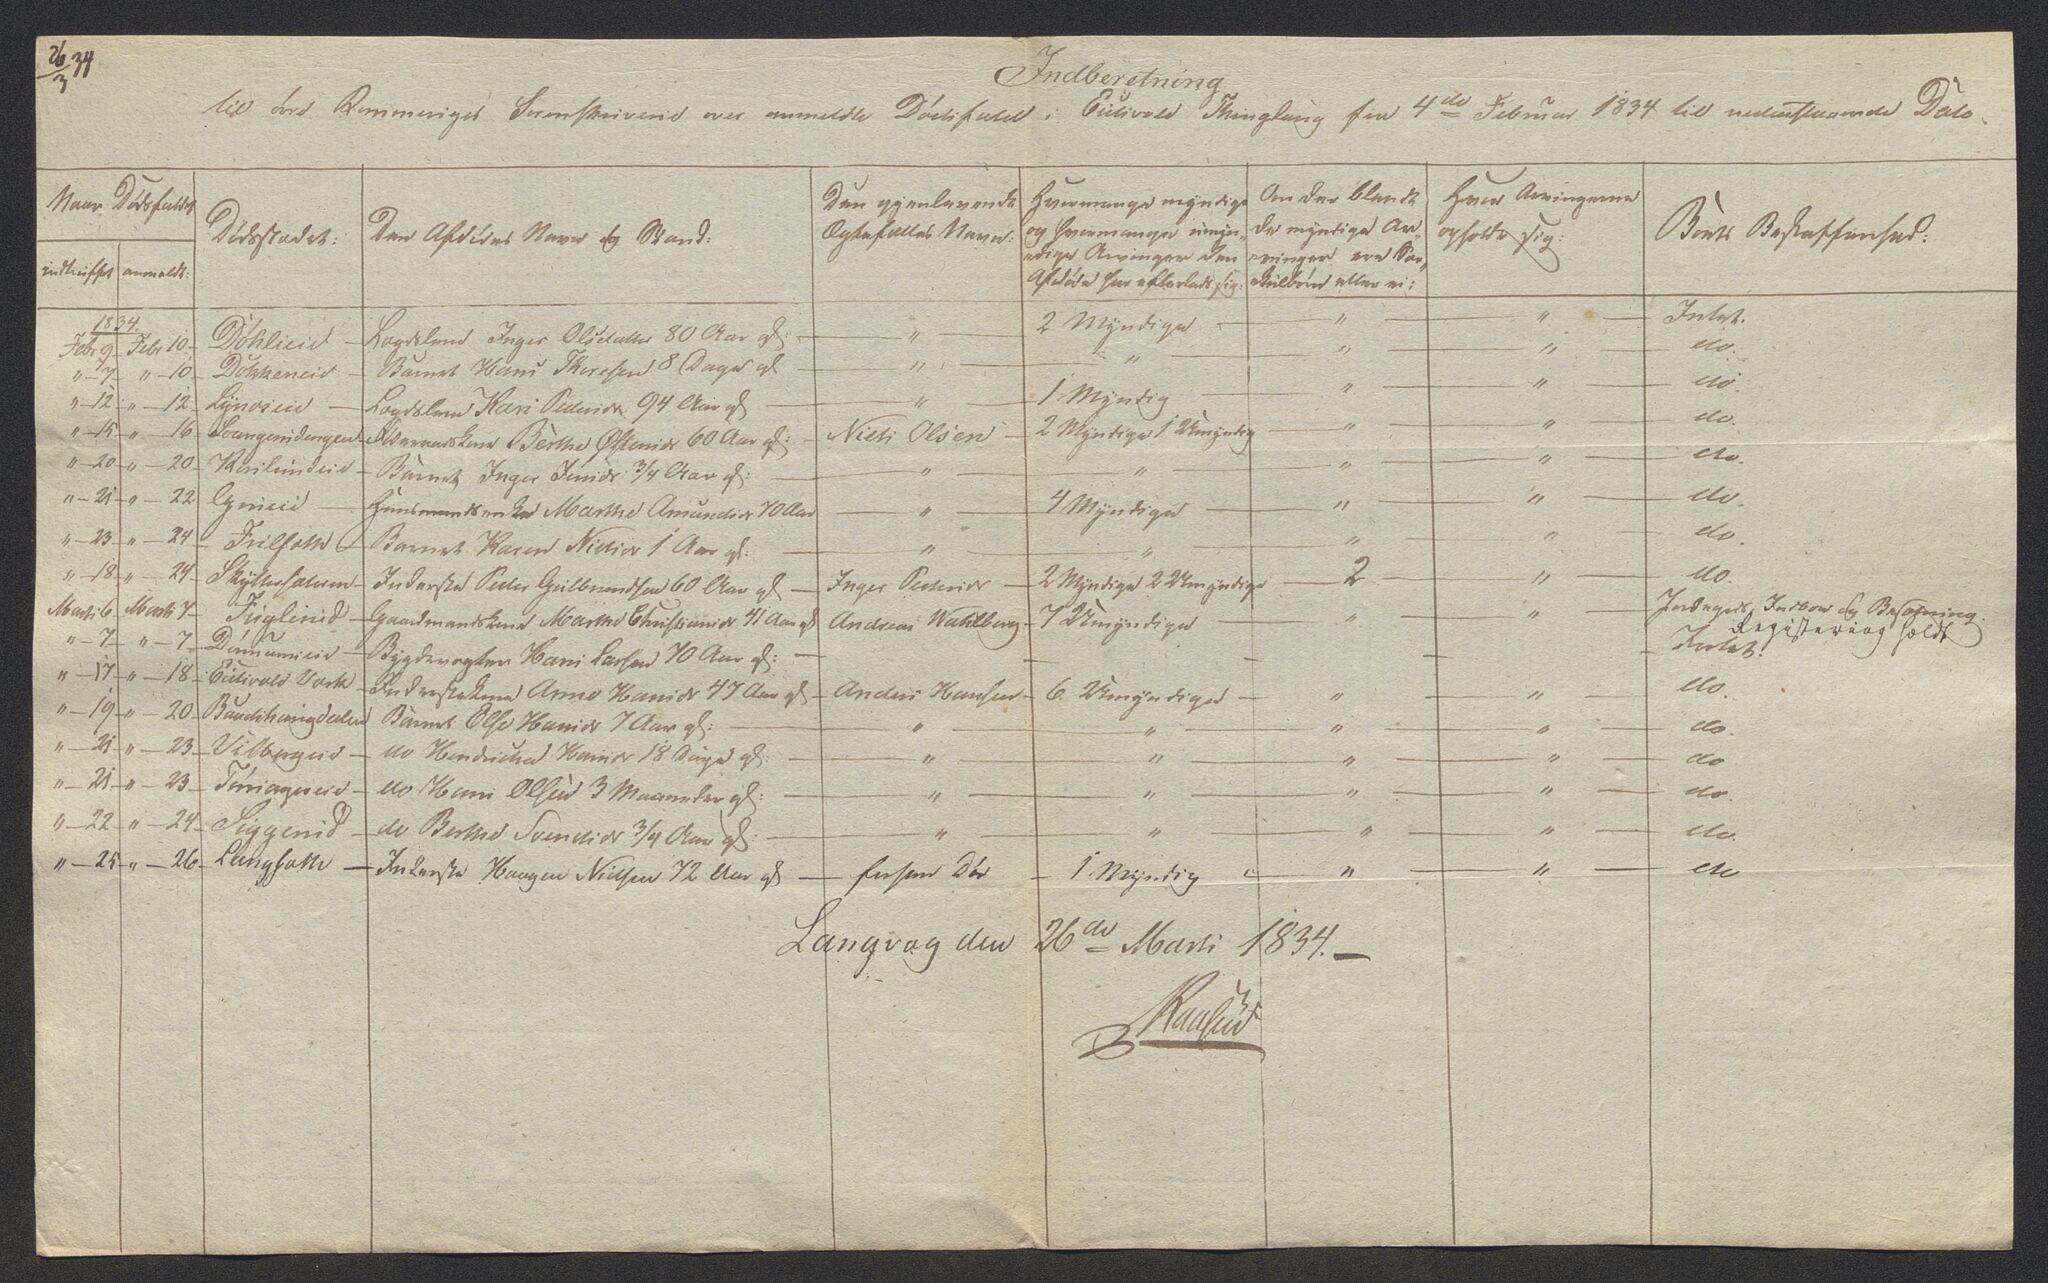 26/3 34
Indberetning
til Øvre Romeriges Sorenskriverie over anmeldte Dødsfald i Eidsvold Thinglaug fra 4de Februar 1834 til nedenstaaende Dato.
Naar Dødsfaldet
indtruffet anmeldt:
Dødsstedet:
Den Afdødes Navn og Stand:
Den gjenlevende
Ægtefælles Navn:
Hvormange myndige
og hvormange umyn-
dige Arvinger den
Afdøde har efterladt sig:
Om der blandt
de myndige Ar-
vinger ere Sør-
skilbørn eller ei:
Hvor Arvingerne
opholde sig:
Boets Beskaffenhed:
1834.
Febr 9 Febr 10 Lægdslem Inger Olsdatter 80 Aar gl: " 2 Myndige " " Intet.
" 7 " 10 Barnet Hans Thoresen 8 Dage gl " " " " do.
" 12 " 12 Lægdslem Kari Pedersdr 94 Aar gl " 1 Myndig " " do.
" 15 " 16 Berthe Østensdr 60 Aar gl: Niels Olsen 2 Myndige 1 Umyndig " " do.
" 20 " 20 Barnet Inger Jensdr 3/4 Aar gl: " " " " do.
" 21 " 22 Huusmandsenke Marthe Amundsdr 70 Aar " 4 Myndige " " do.
" 23 " 24 Barnet Karen Nielsdr 1 Aar gl: " " " " do.
" 18 " 24 Inderste Peder Gulbrandsen 60 Aar gl Inger Pedersdr 2 Myndige 2 Umyndige 2 " do.
Marti 6 Marti 7 Gaardmandskone Marthe Christiansdr 41 Aar gl Andreas Wahlberg 7 Umyndige " " Indboe og Besætning.
Registering holdt
" 7 " 7 Bygdevægter Hans Larsen 70 Aar gl: Intet.
" 17 " 18 Eidsvold Værk Inderstekone Anne Hansdr 47 Aar gl Anders Hansen 6 Umyndige " " do.
" 19 " 20 Barnet Else Hansdr 7 Aar gl: " " " " do.
" 21 " 23 Vilbergeie do Hendrikke Hansdr 18 Dage gl: " " " " do
" 21 " 23 do Hans Olsen 3 Maaneder gl: " " " " do.
" 22 " 24 do Berthe Svendsdr 3/4 Aar gl: " " " " do.
" 25 " 26 Langseth Inderste Haagen Nielsen 72 Aar gl forhen Død 1 Myndig " " do
Langvog den 26de Marti 1834.